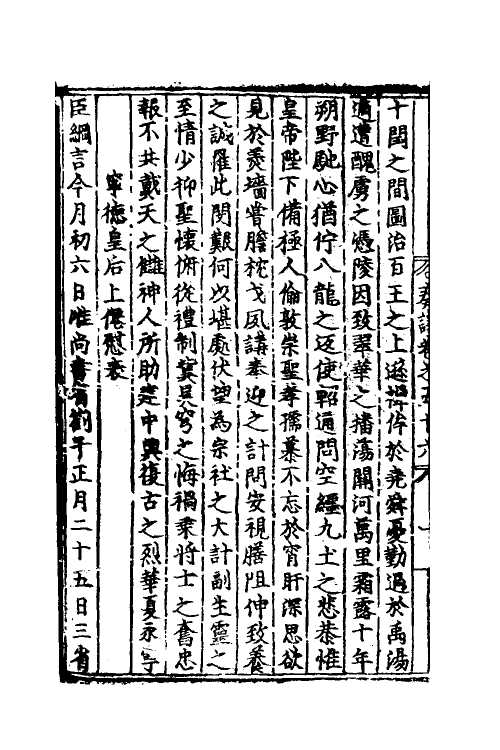 十閏之間圖治百王之上遜揖侔於堯舜憂勤過於禹湯
適遭醜虜之憑陵因致翠華之播蕩關河萬里霜露十年
朔野馳心猶佇八龍之返使軺通問空纏九土之悲恭惟
皇帝陛下備極人倫敦崇聖孝孺慕不忘於宵旰深思欲
見於羹墻嘗膽枕戈夙講奉迎之計問安視膳阻伸致養
之誠罹此閔艱何以堪處伏望為宗社之大計副生靈之
至情少抑聖懷俯從禮制冀旻穹之悔禍乘將士之奮忠
報不共戴天之讎神人所助建中興復古之烈華夏永寧
寧德皇后上僊慰表
臣綱言今月初六日准尚書省劄子正月二十五日三省